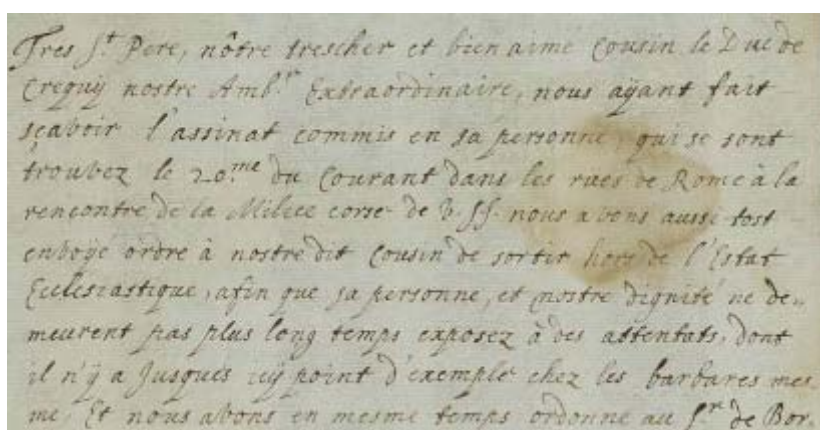 Tres S.t Pere, nôtre trescher et bien aimé Cousin le Duc de
Crequÿ nostre Amb.r Extraordinaire, nous aÿant fait
sçavoir l'assinat commis en sa personne, qui se sont
trouvez le 20.me du Courant dans les rues de Rome à la
rencontre de la Milice corse de V. SS. nous avons aussi tost
envoÿé ordre à nostre dit Cousin de sortir hors de l'Estat
Ecclesiastique, afin que sa personne, et nostre dignité ne de,,
meurent pas plus long temps exposez à des attentats, dont
il n'ÿ a Jusques icÿ point d'exemple chez les barbares mes
me. Et nous avons en mesme temps ordonné au S.r de Bor.